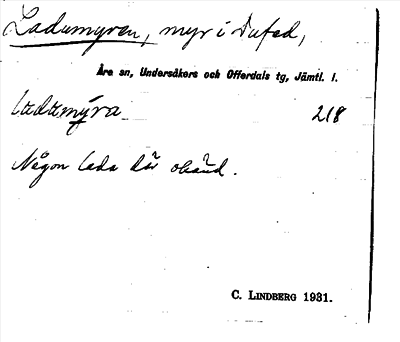 Ladumyren, myr i Tufed,
Åre sn, Undersåkers och Offerdals tg, Jämtl. l.
ladamýra 218
Någon lada där okänd.
C. LINDBERG 1931.